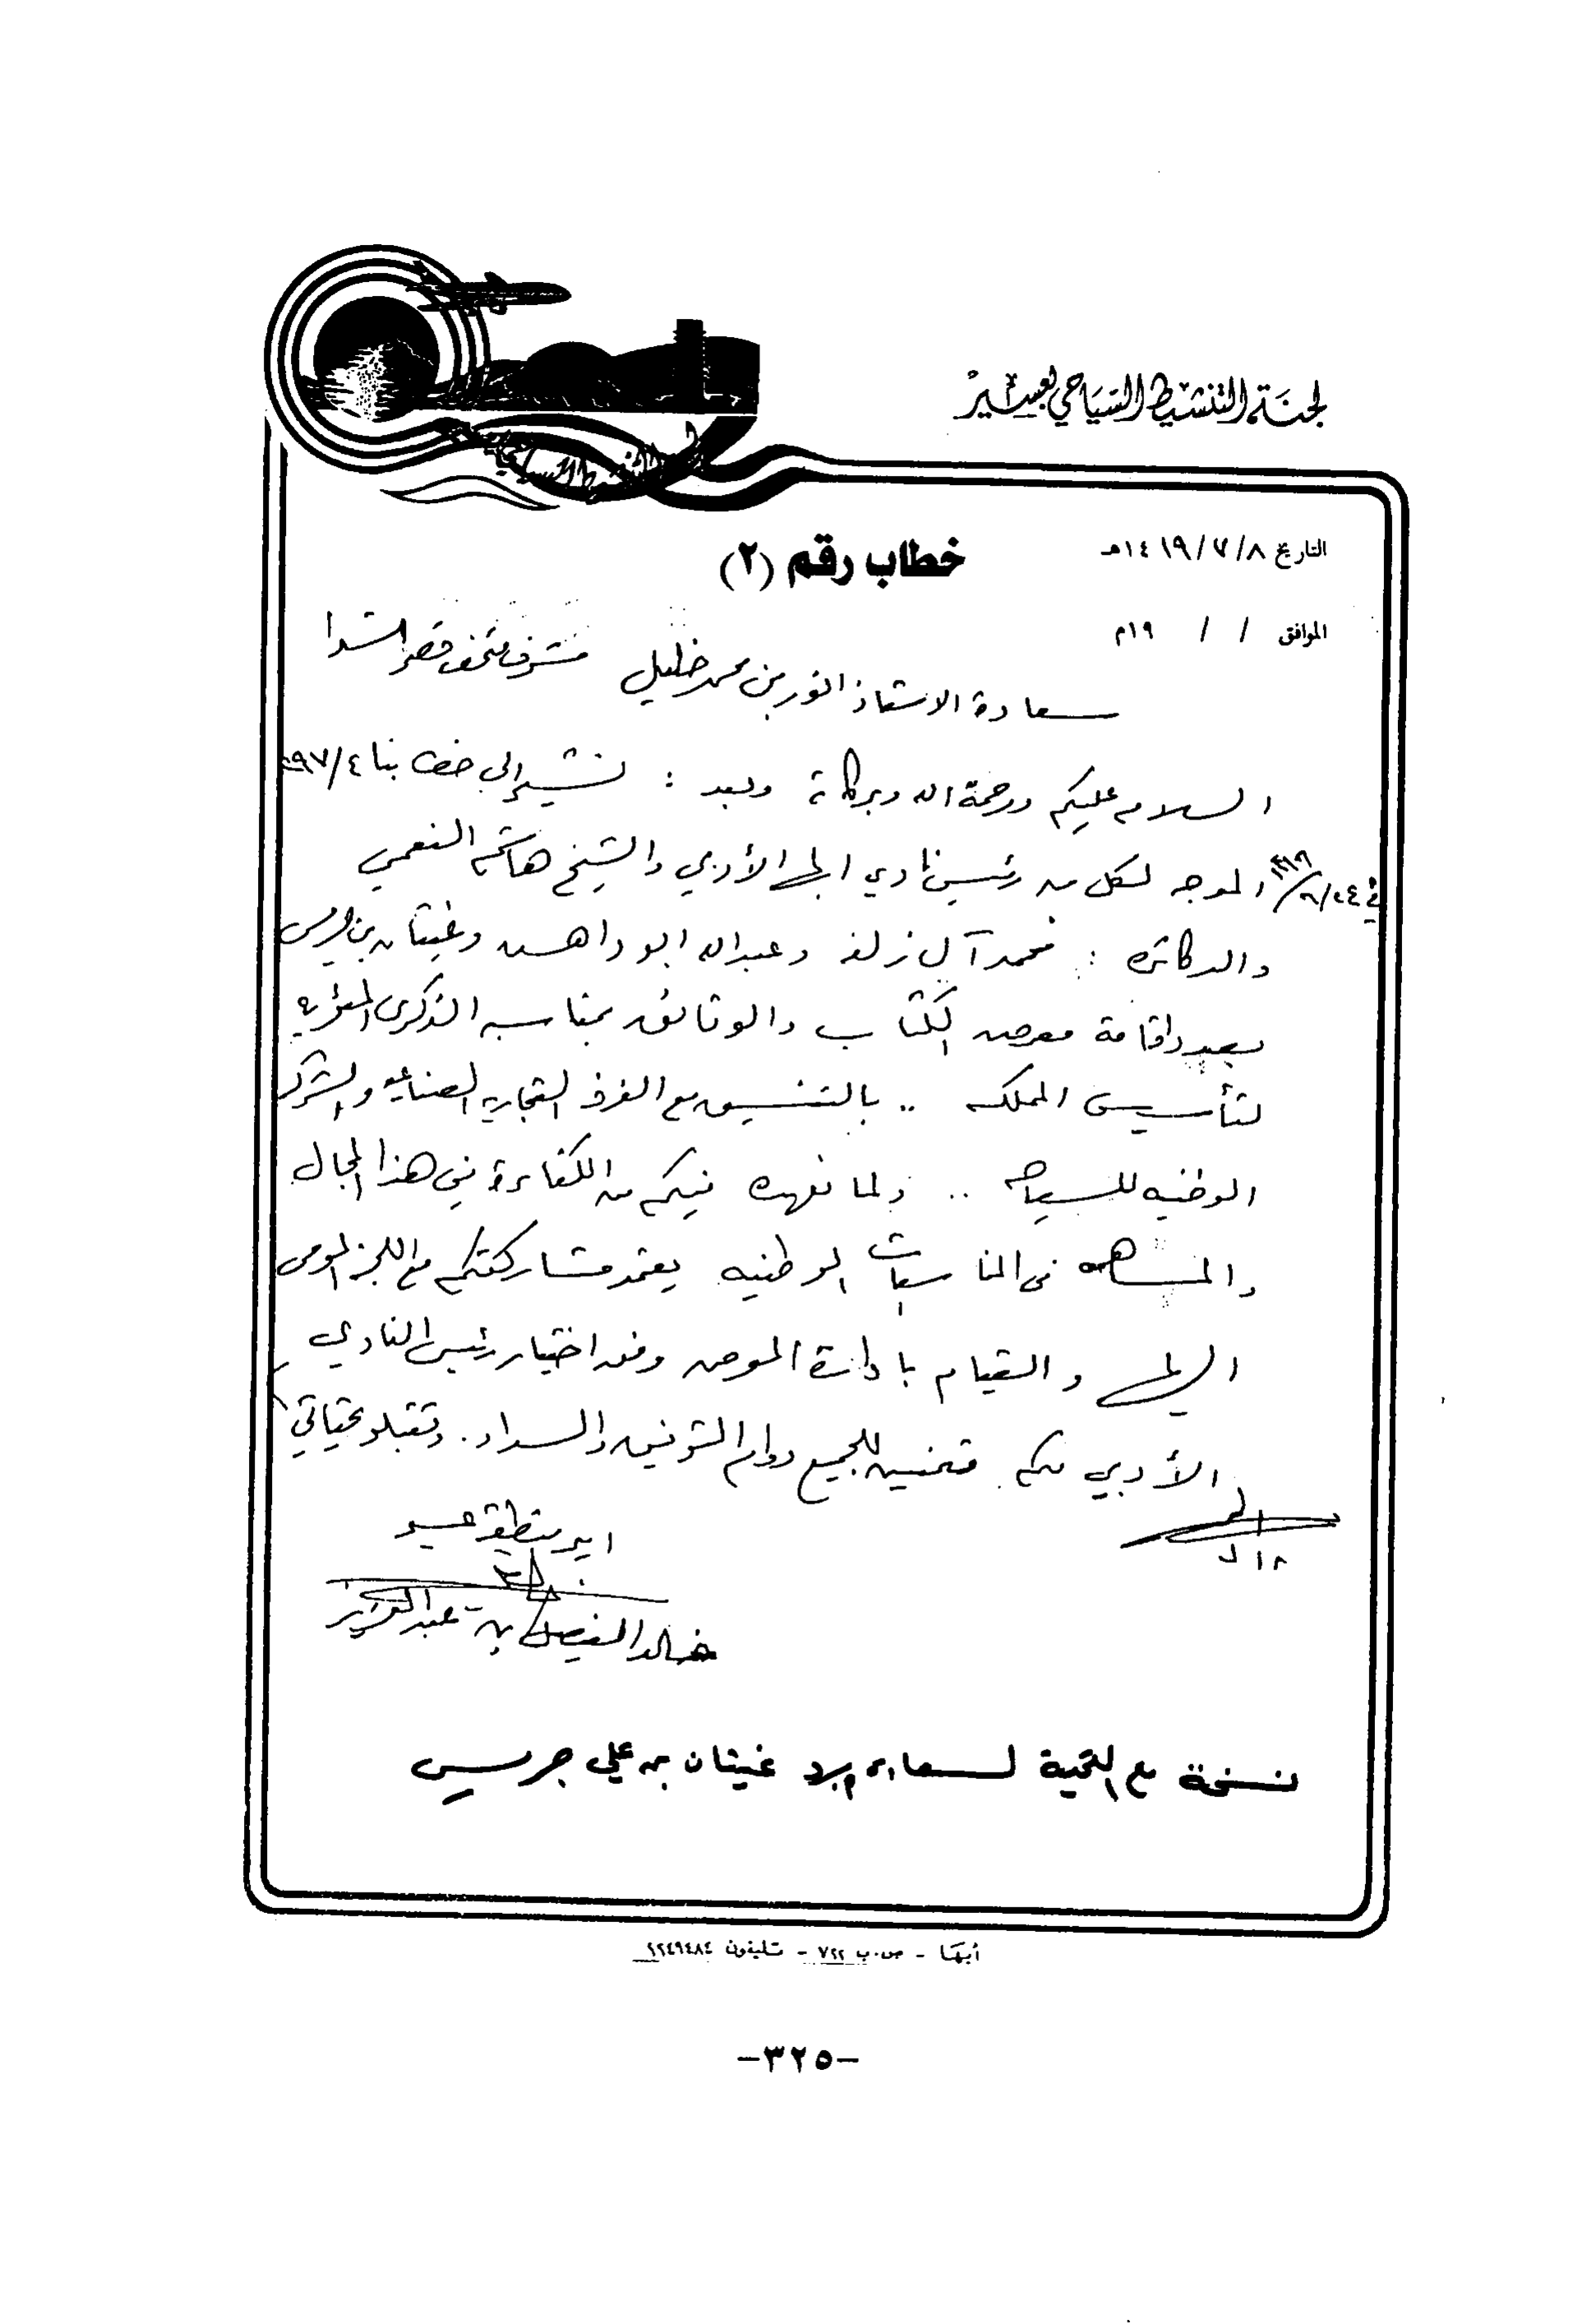 لجنة التنشيط السياحي بعسير
التاريخ ٨/ ٧/ ١٤١٩هـ
خطاب رقم (٢)
الموافق / / ١٩م
سعادة الاستاذ انور بن محمد خليل مشرف متحف قصر شدا
السلام عليكم ورحمة الله وبركاته وبعد : نشير الى خطابنا
الموجه لكل من رئيس نادي ابها الأدبي والشيخ هاشم النعمي
والدكاتره : محمد آل زلفه وعبدالله ابو داهش وغيثان بن جريس
بصدد اقامة معرض الكتاب والوثائق بمناسبه الذكرى المئويه
لتأسيس المملكه .. بالتنسيق مع الغرفه التجاريه الصناعيه والشركه
الوطنيه للسياحه .. ولما نعهده فيكم من الكفاءة في هذا المجال
والمساهمه في المناسبات الوطنيه يعتمد مشاركتكم مع اللجنه المومى
اليها والقيام بادارة المعرض وفق اختيار رئيس النادي
الأدبي لكم متمنين للجميع دوام التوفيق والسداد. وتقبلو تحياتي
امير منطقة عسير
خالد الفيصل بن عبدالعزيز
نسخة مع التحية لسعادة غيثان بن علي جريس
أبها - ص.ب ٧٢٢ - تليفون ٢٢٤٩٤٨٤
-٣٢٥-